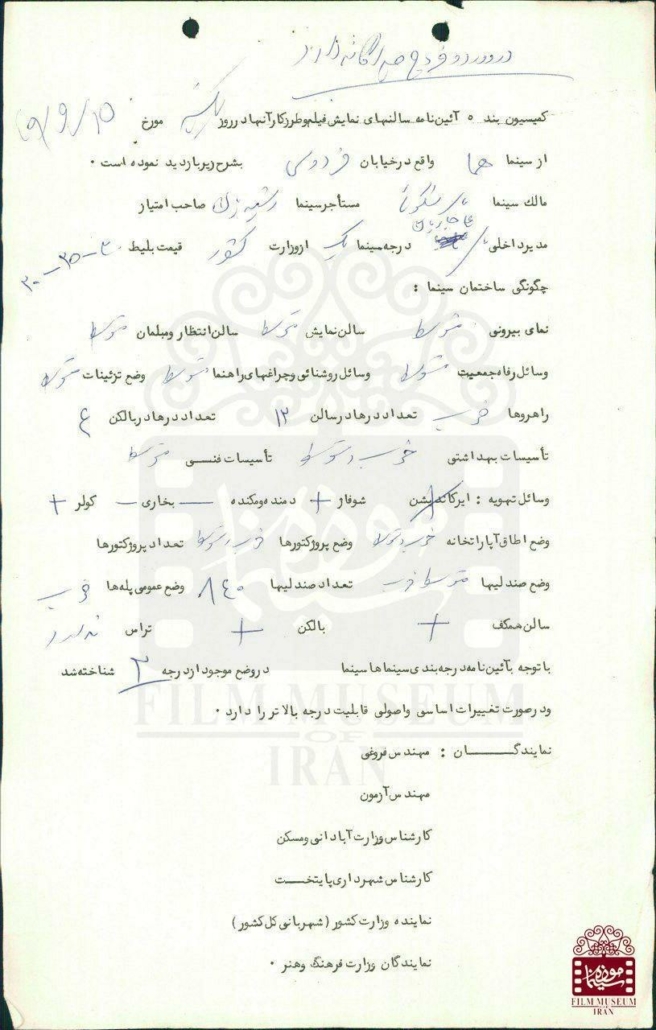 در ورود و خروج جداگانه دارند
کمیسیون بند ۵ آئین‌نامه سالنهای نمایش فیلم و طرز کار آنها در روز یکشنبه مورخ ۱۵/۹/
از سینما هما واقع در خیابان فردوسی بشرح زیر بازدید نموده است ۰
مالک سینما مستأجر سینما صاحب امتیاز
مدیر داخلی درجه سینما یک از وزارت کشور قیمت بلیط ۳۰-۳۵-۲۰
چگونگی ساختمان سینما :
نمای بیرونی متوسط سالن نمایش متوسط سالن انتظار و مبلمان متوسط
وسائل رفاه جمعیت متوسط وسائل روشنائی و چراغهای راهنما متوسط وضع تزئینات متوسط
راهروها خوب تعداد درها در سالن ۱۲ تعداد درها در بالکن ۴
تأسیسات بهداشتی خوب متوسط تأسیسات فنی متوسط
وسائل تهویه : ایرکاندیشن شوفاژ + دمنده و مکنده — بخاری — کولر +
وضع اطاق آپاراتخانه خوب متوسط وضع پروژکتورها خوب متوسط تعداد پروژکتورها
وضع صندلیها متوسط خوب تعداد صندلیها ۸۴۰ وضع عمومی پله‌ها خوب
سالن همکف + بالکن + تراس ندارد
با توجه بآئین‌نامه درجه بندی سینماها سینما در وضع موجود از درجه ۲ شناخته شد
و در صورت تغییرات اساسی و اصولی قابلیت درجه بالاتر را دارد ۰
نمایندگان : مهندس فروغی
مهندس آزمون
کارشناس وزارت آبادانی و مسکن
کارشناس شهرداری پایتخت
نماینده وزارت کشور (شهربانی کل کشور)
نمایندگان وزارت فرهنگ و هنر ۰
FILM MUSEUM
OF
IRAN
موزه سینما
FILM MUSEUM
IRAN